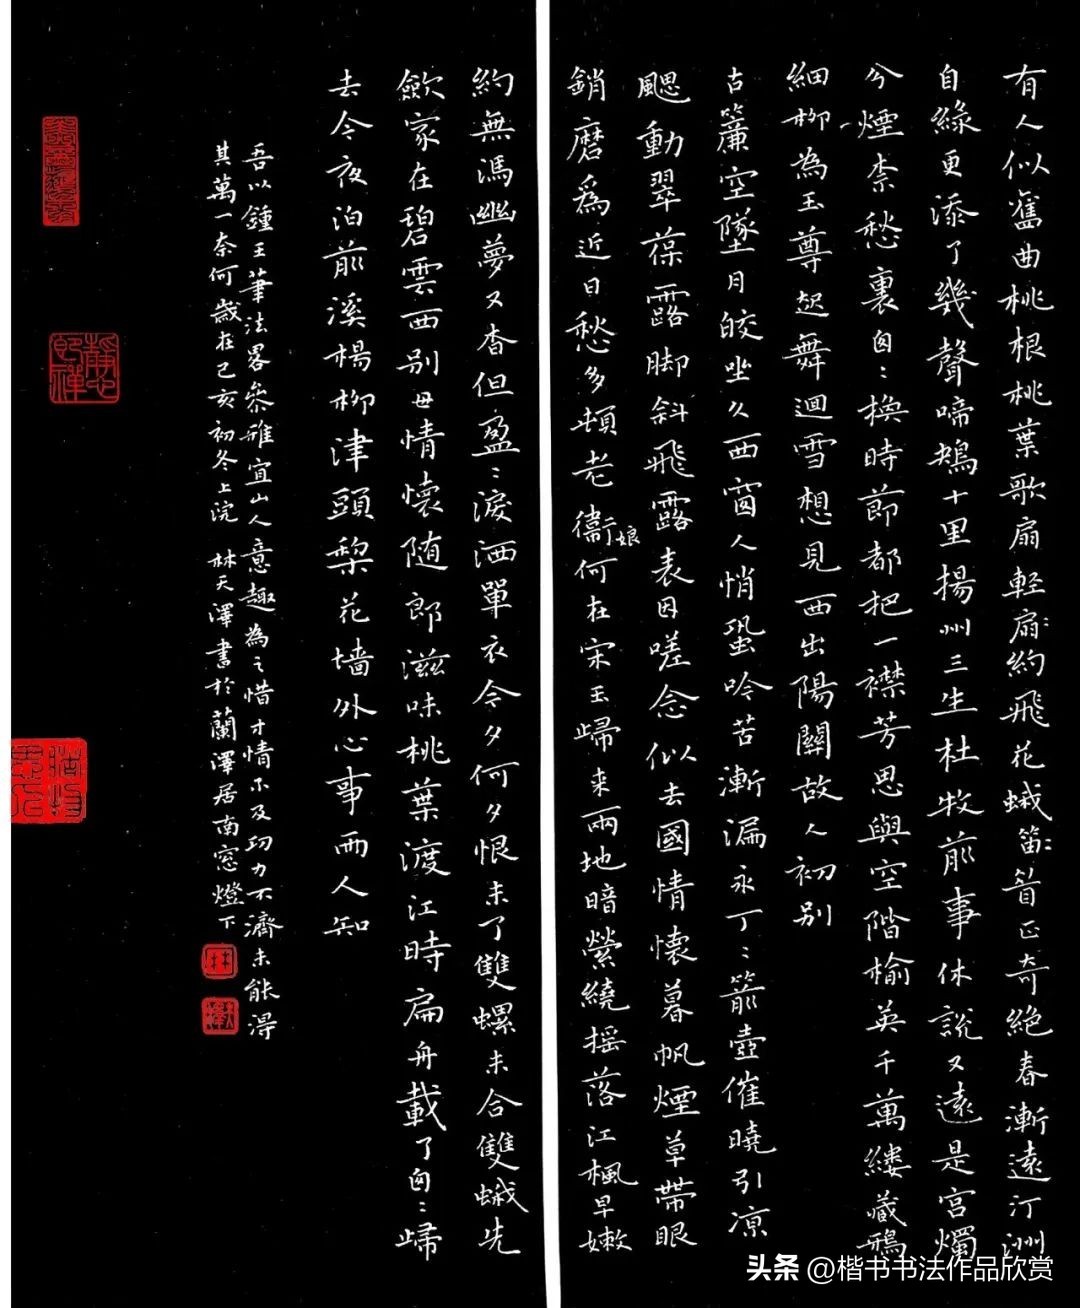 有人似舊曲桃根桃葉歌扇輕扇:約飛花蛾笛:首正奇絕春漸遠汀洲
自緣更添了幾聲啼鴂十里揚州三生杜牧前事休說又遠是宮燭
兮煙柰愁裏匆:換時節都把一襟芳思與空階榆莢千萬縷藏鴉
細柳為玉尊起舞迴雪想見西出陽關故人初別
古簾空墜月皎坐久西窗人悄蛩吟苦漸漏永丁:箭壺催曉引涼
颸動翠葆露脚斜飛露表因嗟念似去國情懷暮帆煙草帶眼
銷磨為近日愁多頓老衛娘何在宋玉歸来兩地暗縈繞搖落江楓早嫩
約無馮幽夢又杳但盈:淚洒單衣今夕何夕恨未了雙螺未合雙蛾先
歛家在碧雲西別毋情懷随郎滋味桃葉渡江時扁舟載了匆:歸
去今夜泊前溪楊柳津頭梨花墙外心事兩人知
吾以鍾王筆法畧參雒宜山人意趣為之惜才情不及功力不濟未能得
其萬一奈何歲在己亥初冬上浣 林天澤書於蘭澤居南窓燈下
林
靜心即禪
头条 @楷书书法作品欣赏